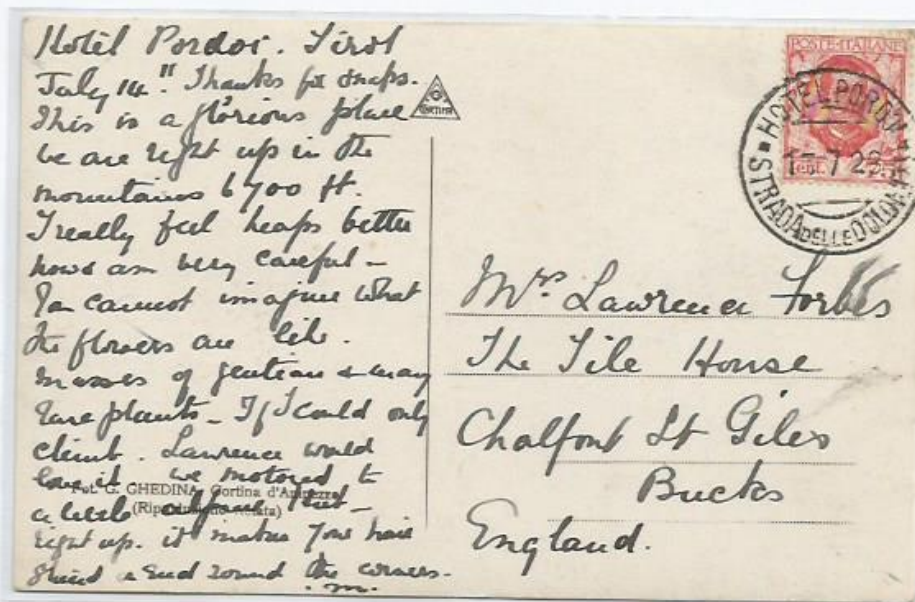 Hotel Pordoi. Tirol
July 14". Thanks for snaps.
This is a glorious place
we are right up in the
mountains 6700 ft.
I really feel heaps better
now & am very careful -
You cannot imagine what
the flowers are like.
masses of gentian & many
rare plants - If I could only
climb. Lawrence would
love it. we motored to
a little
right up. it makes your hair
stand & end round the corners.
. m.
Fot. G. GHEDINA, Cortina d'Ampezzo
(Riproduzione vietata)
G
CORTINA
POSTE ITALIANE
HOTEL PORDOI
STRADA DELLE DOLOMITI
Mrs Lawrence Forbes
The Tile House
Chalfont St Giles
Bucks
England.